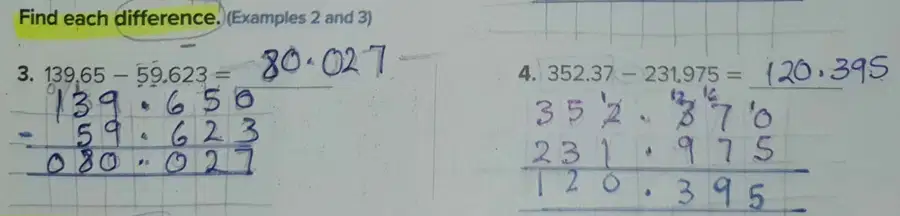 Find each difference. (Examples 2 and 3)
3. 139.65 – 59.623 = 80.027
139.650
- 59.623
080.027
4. 352.37 – 231.975 = 120.395
1 12 16 1
352.370
231.975
120.395